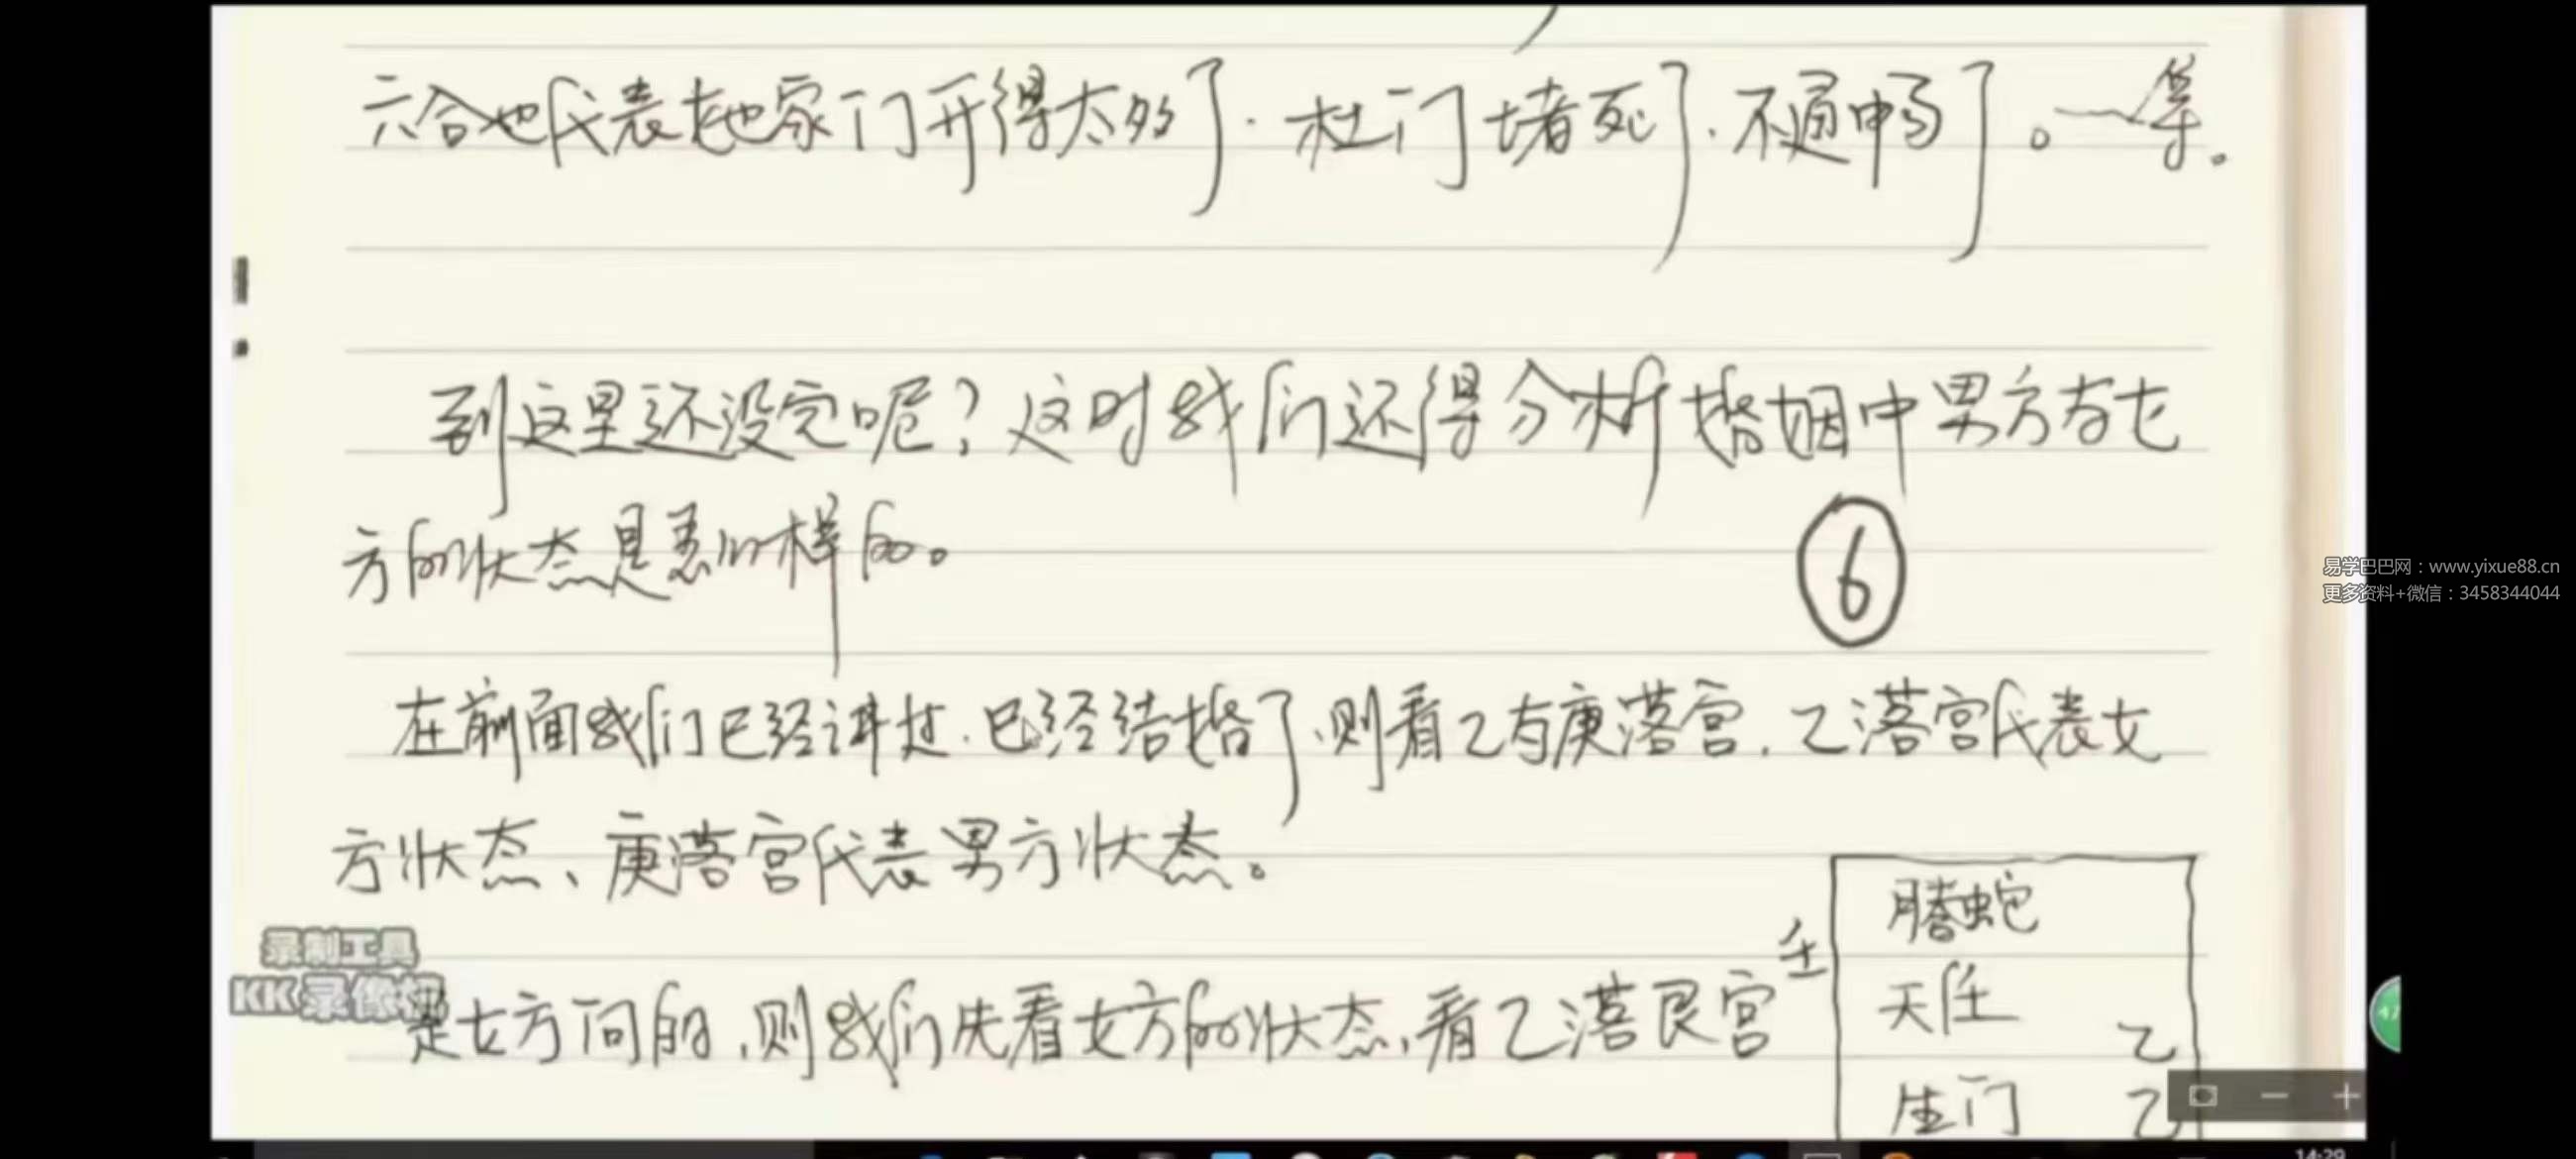 六合也代表她家门开得太多了.杜门堵死了.不通畅了。一等。
到这里还没完呢?这时我们还得分析婚姻中男方与七
方的状态是怎么样的。
⑥
易学巴巴网：www.yixue88.cn
更多资料+微信：3458344044
在前面我们已经讲过.已经结婚了.则看乙与庚落宫.乙落宫代表女
方状态、庚落宫代表男方状态。
录制工具
KK录像机
是女方问的,则我们先看女方的状态,看乙落艮宫
壬
腾蛇
天任
乙
生门
乙
47
14:29